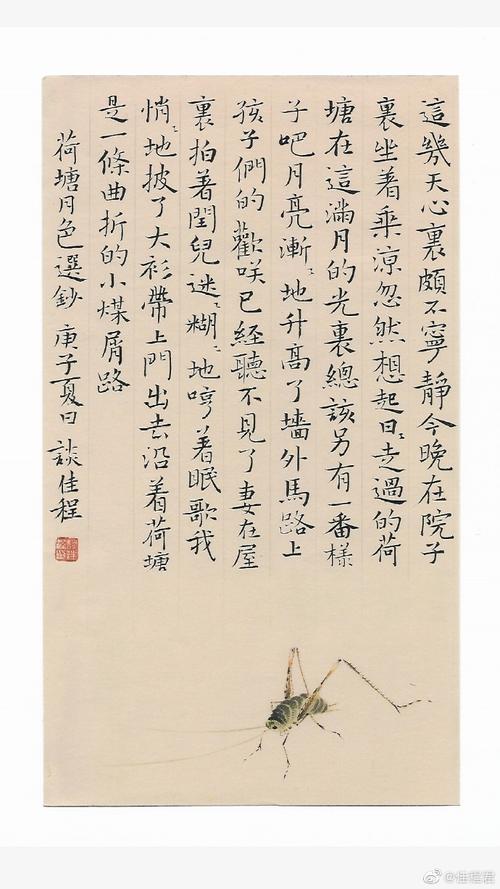 這幾天心裏頗不寧靜今晚在院子
裏坐着乘涼忽然想起日〻走過的荷
塘在這滿月的光裏總該另有一番樣
子吧月亮漸〻地升高了墻外馬路上
孩子們的歡咲已經聽不見了妻在屋
裏拍着閏兒迷〻糊〻地哼着眠歌我
悄〻地披了大衫帶上門出去沿着荷塘
是一條曲折的小煤屑路
荷塘月色選鈔 庚子夏日 談佳程
@佳程君